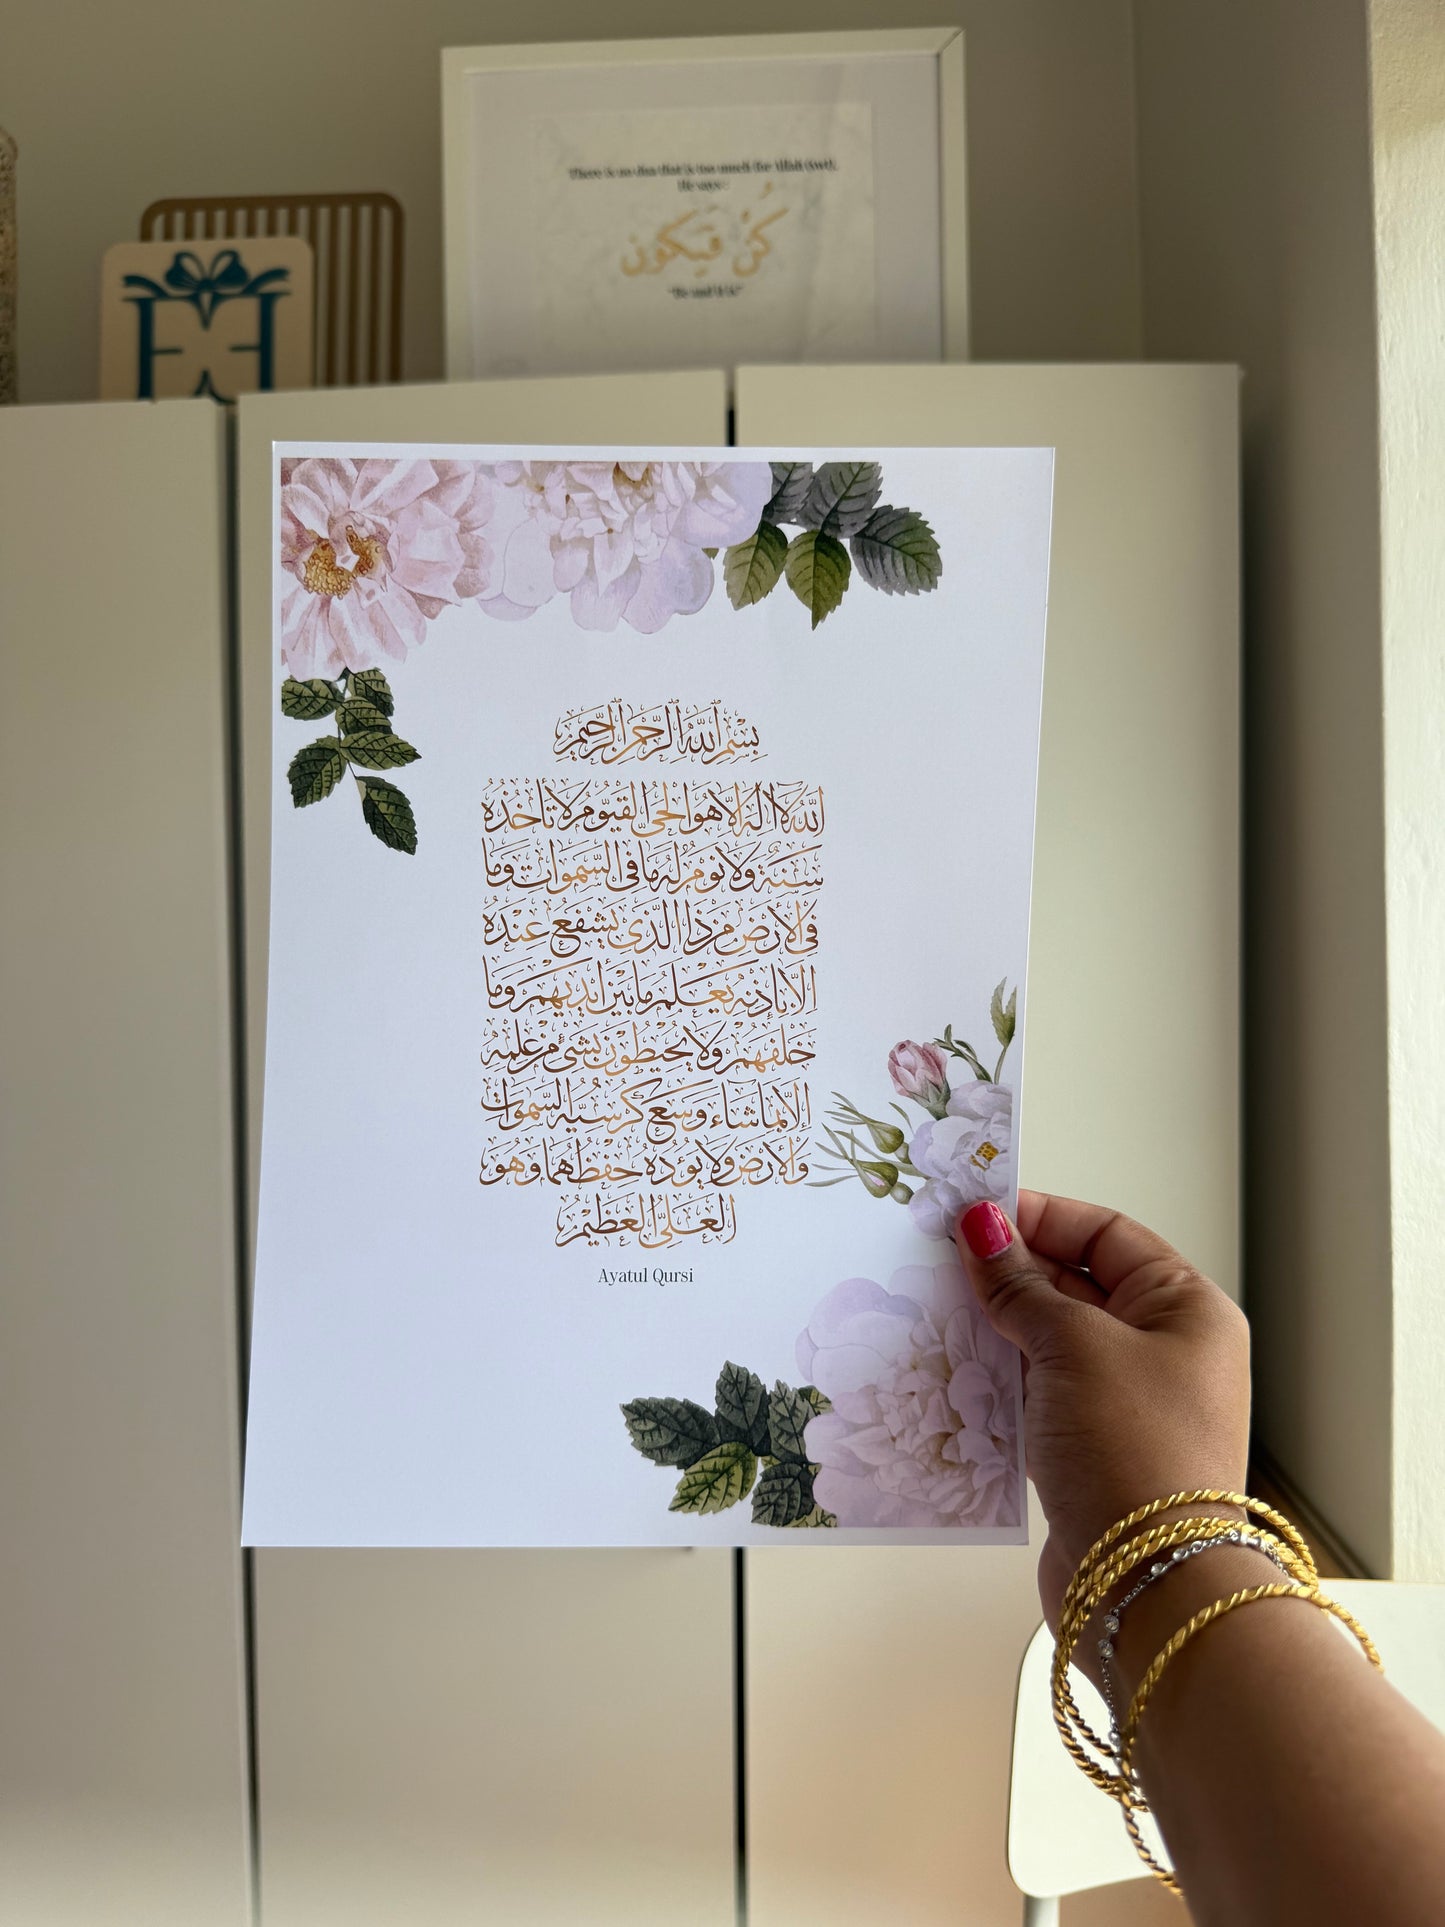 There is no dua that is too much for Allah (swt),
He says :
كُنْ فَيَكُون
"Be and it is"
بِسْمِ ٱللَّهِ ٱلرَّحْمَٰنِ ٱلرَّحِيمِ
اَللَّهُ لَا إِلَهَ إِلَّا هُوَ الْحَيُّ الْقَيُّومُ لَا تَأْخُذُهُ
سِنَةٌ وَلَا نَوْمٌ لَهُ مَا فِي السَّمَوَاتِ وَمَا
فِي الْأَرْضِ مَنْ ذَا الَّذِي يَشْفَعُ عِنْدَهُ
إِلَّا بِإِذْنِهِ يَعْلَمُ مَا بَيْنَ أَيْدِيهِمْ وَمَا
خَلْفَهُمْ وَلَا يُحِيطُونَ بِشَيْءٍ مِنْ عِلْمِهِ
إِلَّا بِمَا شَاءَ وَسِعَ كُرْسِيُّهُ السَّمَوَاتِ
وَالْأَرْضَ وَلَا يَؤُدُهُ حِفْظُهُمَا وَهُوَ
الْعَلِيُّ الْعَظِيمُ
Ayatul Qursi